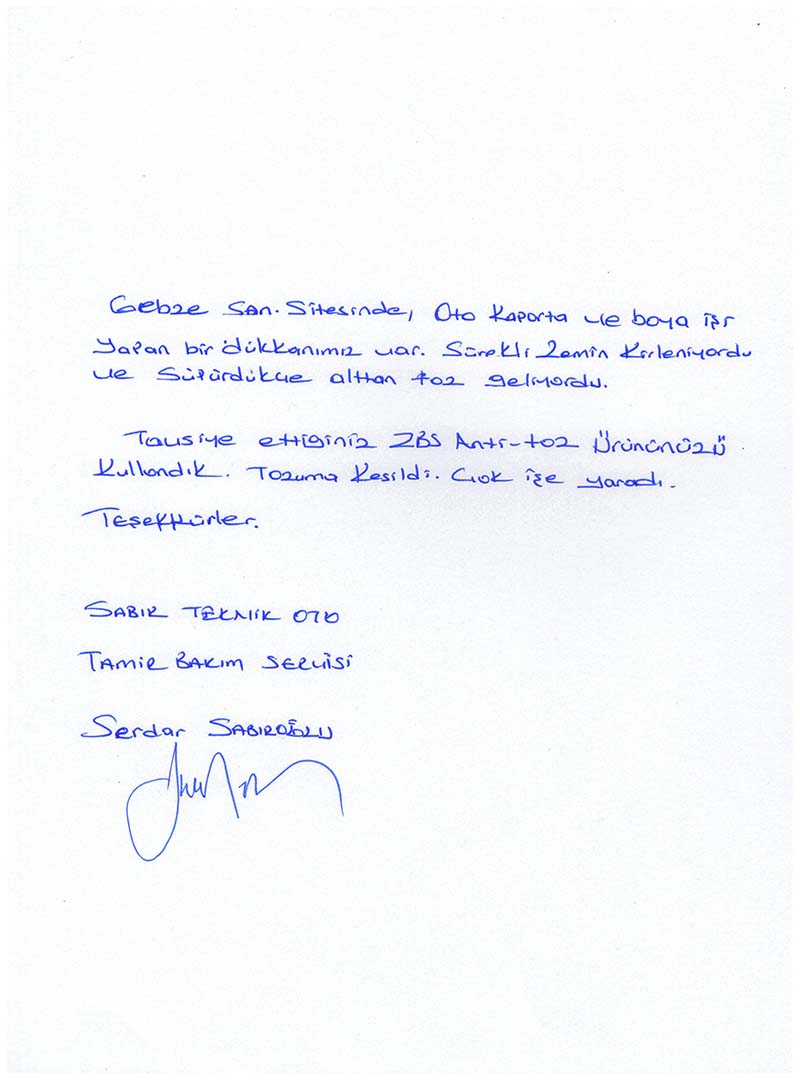 Gebze San. Sitesinde, Oto Kaporta ve boya işi
Yapan bir dükkanımız var. Sürekli Zemin Kirleniyordu
ve Süpürdükçe alttan toz geliyordu.
Tavsiye ettiginiz ZBS Anti-toz Ürününüzü
Kullandık. Tozuma Kesildi. Çok işe yaradı.
Teşekkürler.
SABIR TEKNİK OTO
TAMİR BAKIM SERVİSİ
Serdar SABIROĞLU